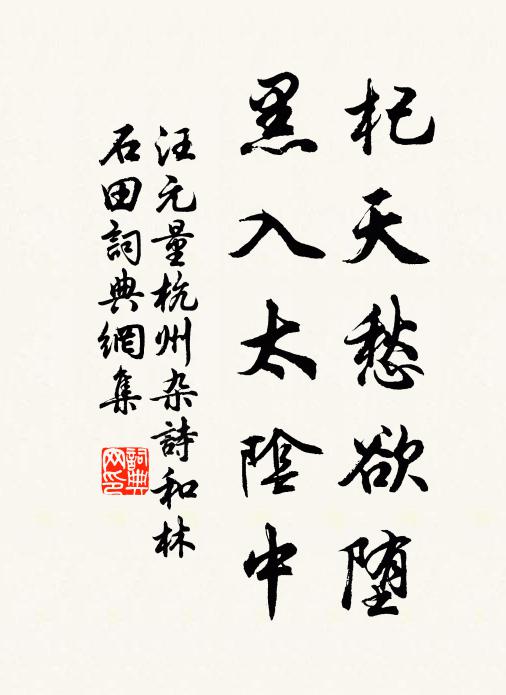 杞天愁欲堕
黑入太陰中
汪元量杭州杂詩和林
石田詞典網集
詞典网印